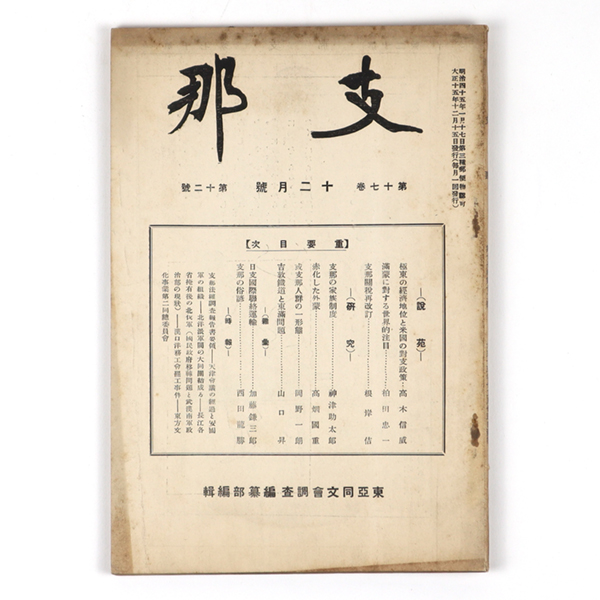 明治四十五年一月十七日第三種郵便物認可
大正十五年十二月十五日發行(每月一回發行)
支那
第十七卷 十二月號 第十二號
【重要目次】
―(說苑)―
極東の經濟地位と米國の對支政策 高木信威
滿蒙に對する世界的注目 柏田忠一
支那關稅再改訂 根岸佶
―(硏究)―
支那の家族制度 神津助太郎
赤化した外蒙 高畑國重
或支那人群の一形態 岡野一朗
吉敦鐵道と東滿問題 山口昇
―(雜彙)―
日支國際聯絡運輸 加藤鎌三郎
支那の俗謠 西田龍
―(時報)―
支那法權調査報告書要領――天津會議の經過と安國
軍の組織――北洋派軍閥の大同團結成る――長江各
省抛有後の北伐軍(國民政府移轉問題と武漢南軍政
治部の現狀)――漢口洋務工會罷工事件――東方文
化事業第二回總委員會
東亞同文會調查編纂部編輯